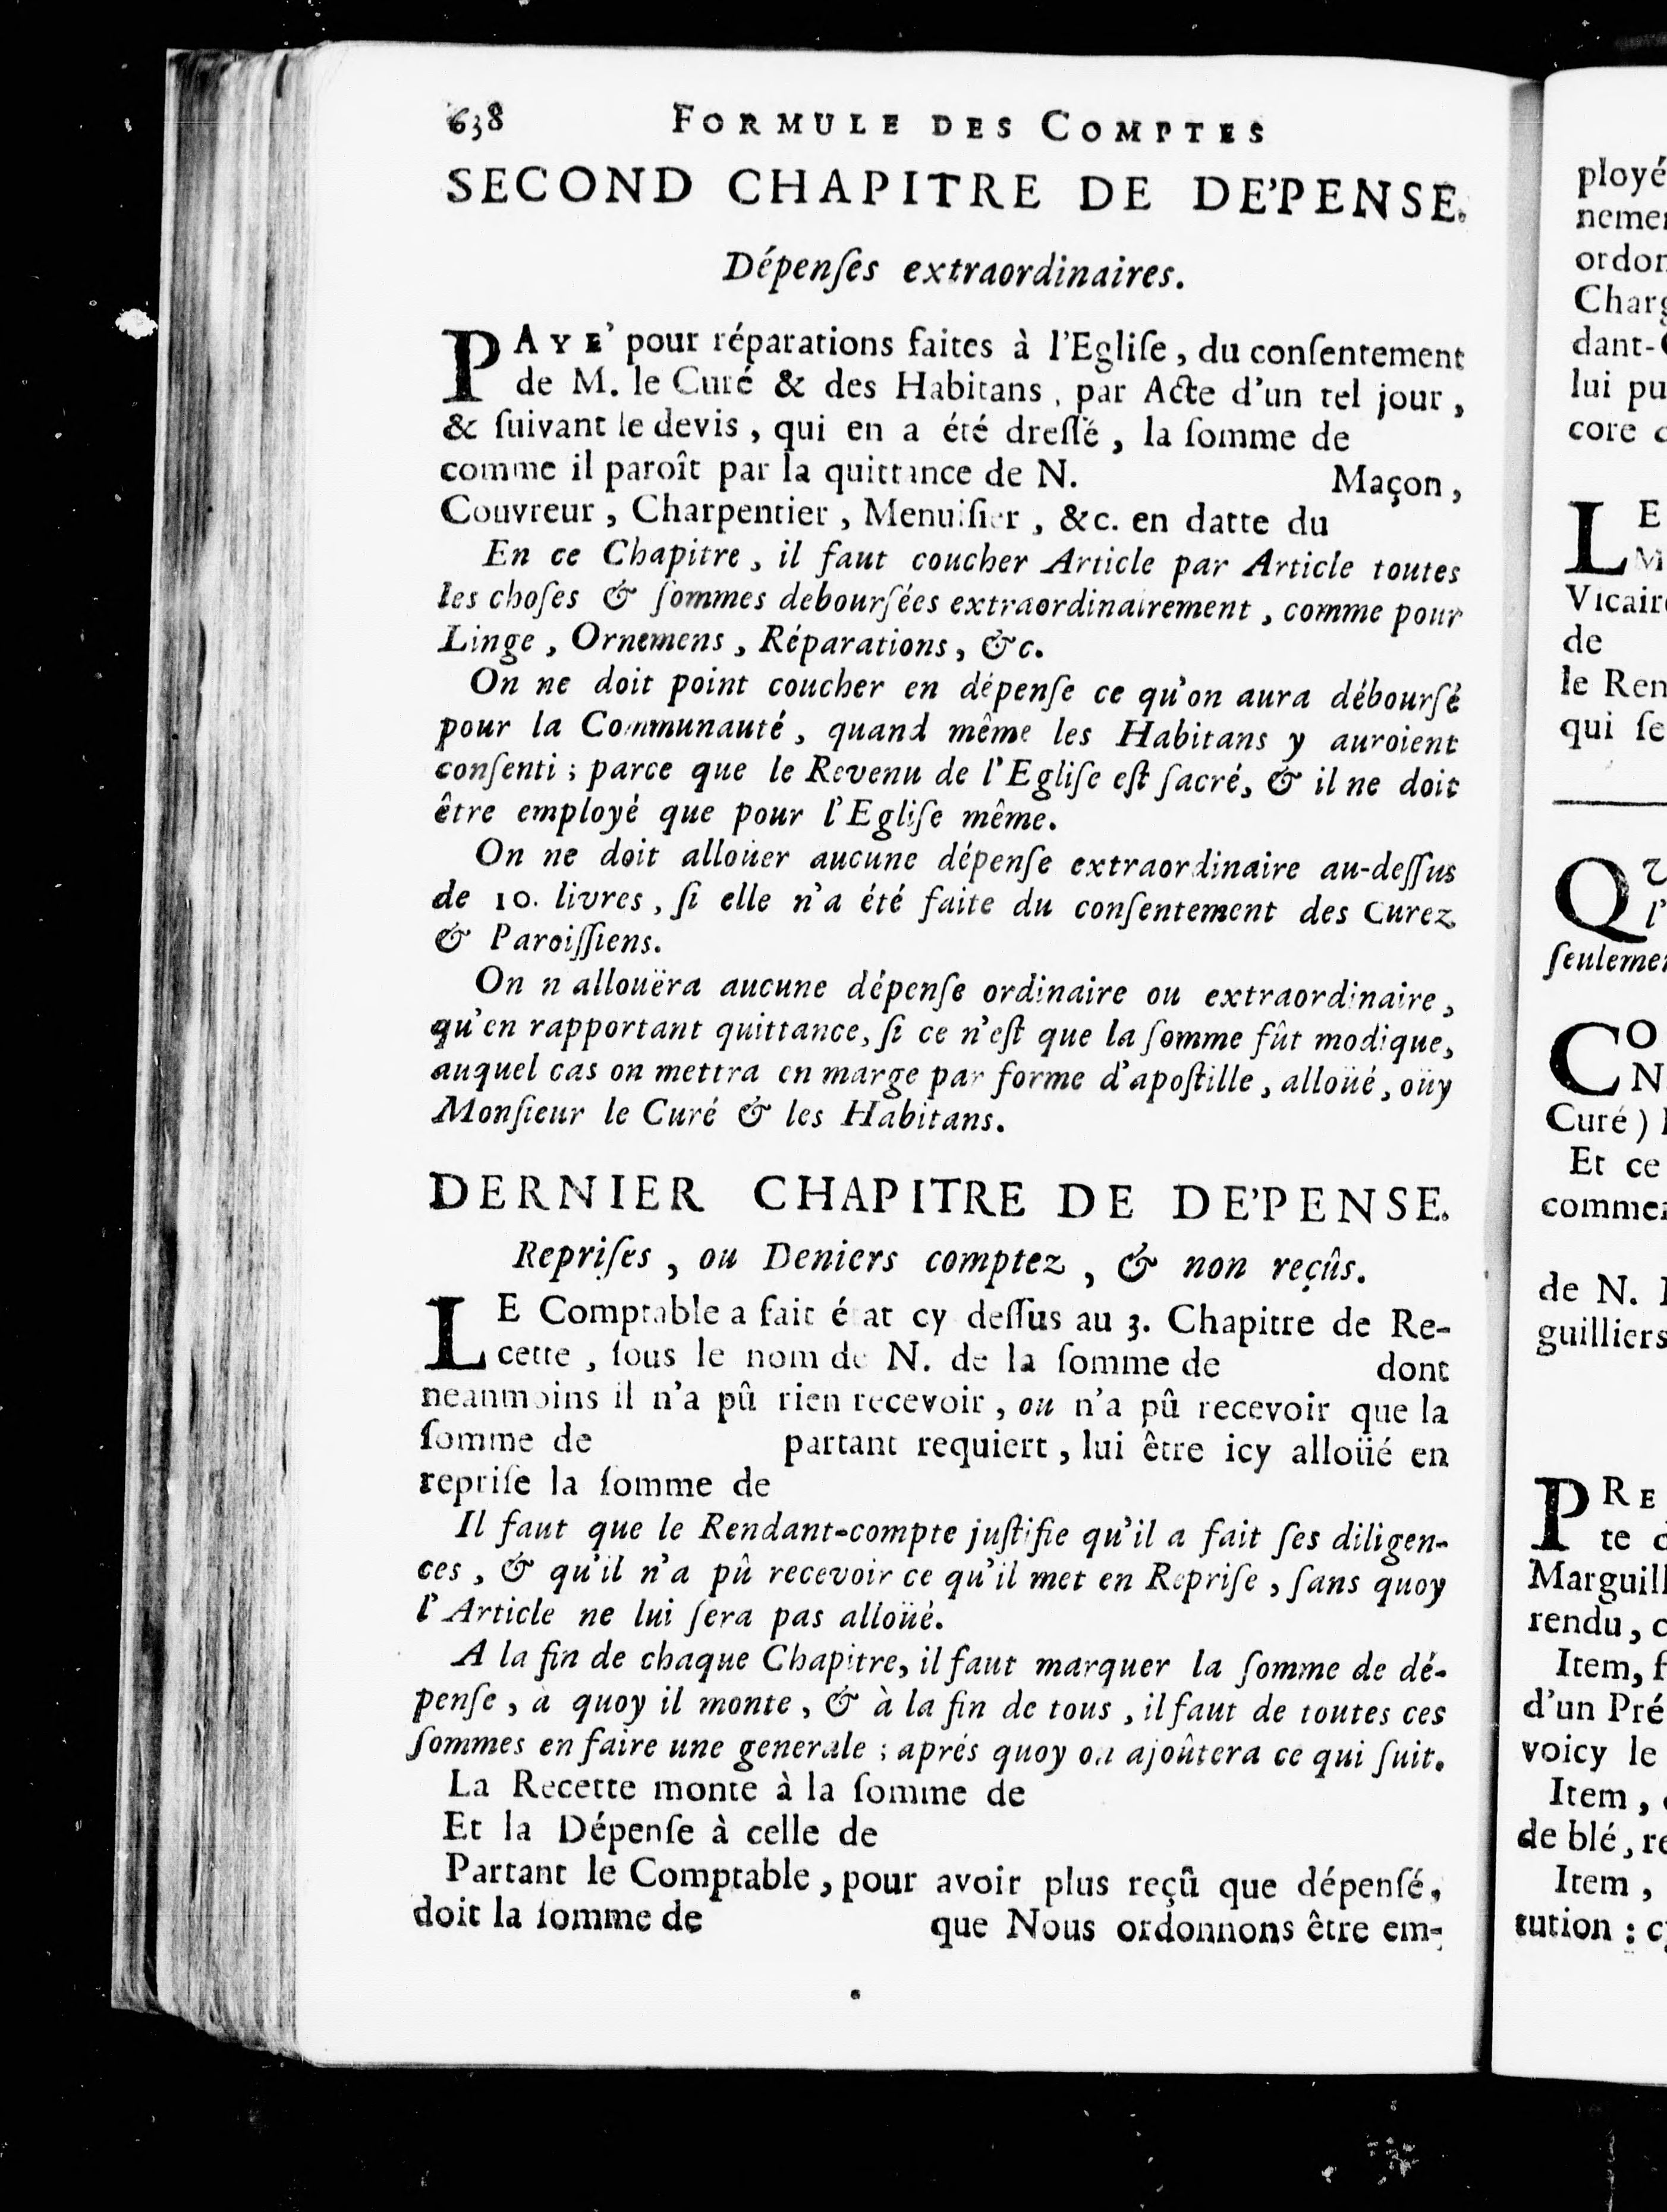 638 FORMULE DES COMPTES
SECOND CHAPITRE DE DE'PENSE.
Dépenſes extraordinaires.
PAYE' pour réparations faites à l'Egliſe, du conſentement
de M. le Curé & des Habitans, par Acte d'un tel jour,
& ſuivant le devis, qui en a été dreſſé, la ſomme de
comme il paroît par la quittance de N. Maçon,
Couvreur, Charpentier, Menuiſier, &c. en datte du
En ce Chapitre, il faut coucher Article par Article toutes
les choſes & ſommes debourſées extraordinairement, comme pour
Linge, Ornemens, Réparations, &c.
On ne doit point coucher en dépenſe ce qu'on aura débourſé
pour la Communauté, quand même les Habitans y auroient
conſenti; parce que le Revenu de l'Egliſe eſt ſacré, & il ne doit
être employé que pour l'Egliſe même.
On ne doit alloüer aucune dépenſe extraordinaire au-deſſus
de 10. livres, ſi elle n'a été faite du conſentement des Curez
& Paroiſſiens.
On n allouëra aucune dépenſe ordinaire ou extraordinaire,
qu'en rapportant quittance, ſi ce n'eſt que la ſomme fût modique,
auquel cas on mettra en marge par forme d'apoſtille, alloüé, oüy
Monſieur le Curé & les Habitans.
DERNIER CHAPITRE DE DE'PENSE.
Repriſes, ou Deniers comptez, & non reçûs.
LE Comptable a fait état cy deſſus au 3. Chapitre de Re-
cette, ſous le nom de N. de la ſomme de dont
neanmoins il n'a pû rien recevoir, ou n'a pû recevoir que la
ſomme de partant requiert, lui être icy alloüé en
repriſe la ſomme de
Il faut que le Rendant-compte juſtifie qu'il a fait ſes diligen-
ces, & qu'il n'a pû recevoir ce qu'il met en Repriſe, ſans quoy
l'Article ne lui ſera pas alloüé.
A la fin de chaque Chapitre, il faut marquer la ſomme de dé-
penſe, à quoy il monte, & à la fin de tous, il faut de toutes ces
ſommes en faire une generale; aprés quoy on ajoûtera ce qui ſuit.
La Recette monte à la ſomme de
Et la Dépenſe à celle de
Partant le Comptable, pour avoir plus reçû que dépenſé,
doit la ſomme de que Nous ordonnons être em-
ployé
Vicair
de
le Ren
qui ſe
Curé)
Et ce
de N.
guilliers
Marguill
rendu,
Item,
d'un Pré
voicy le
Item,
de blé, re
Item,
tution :